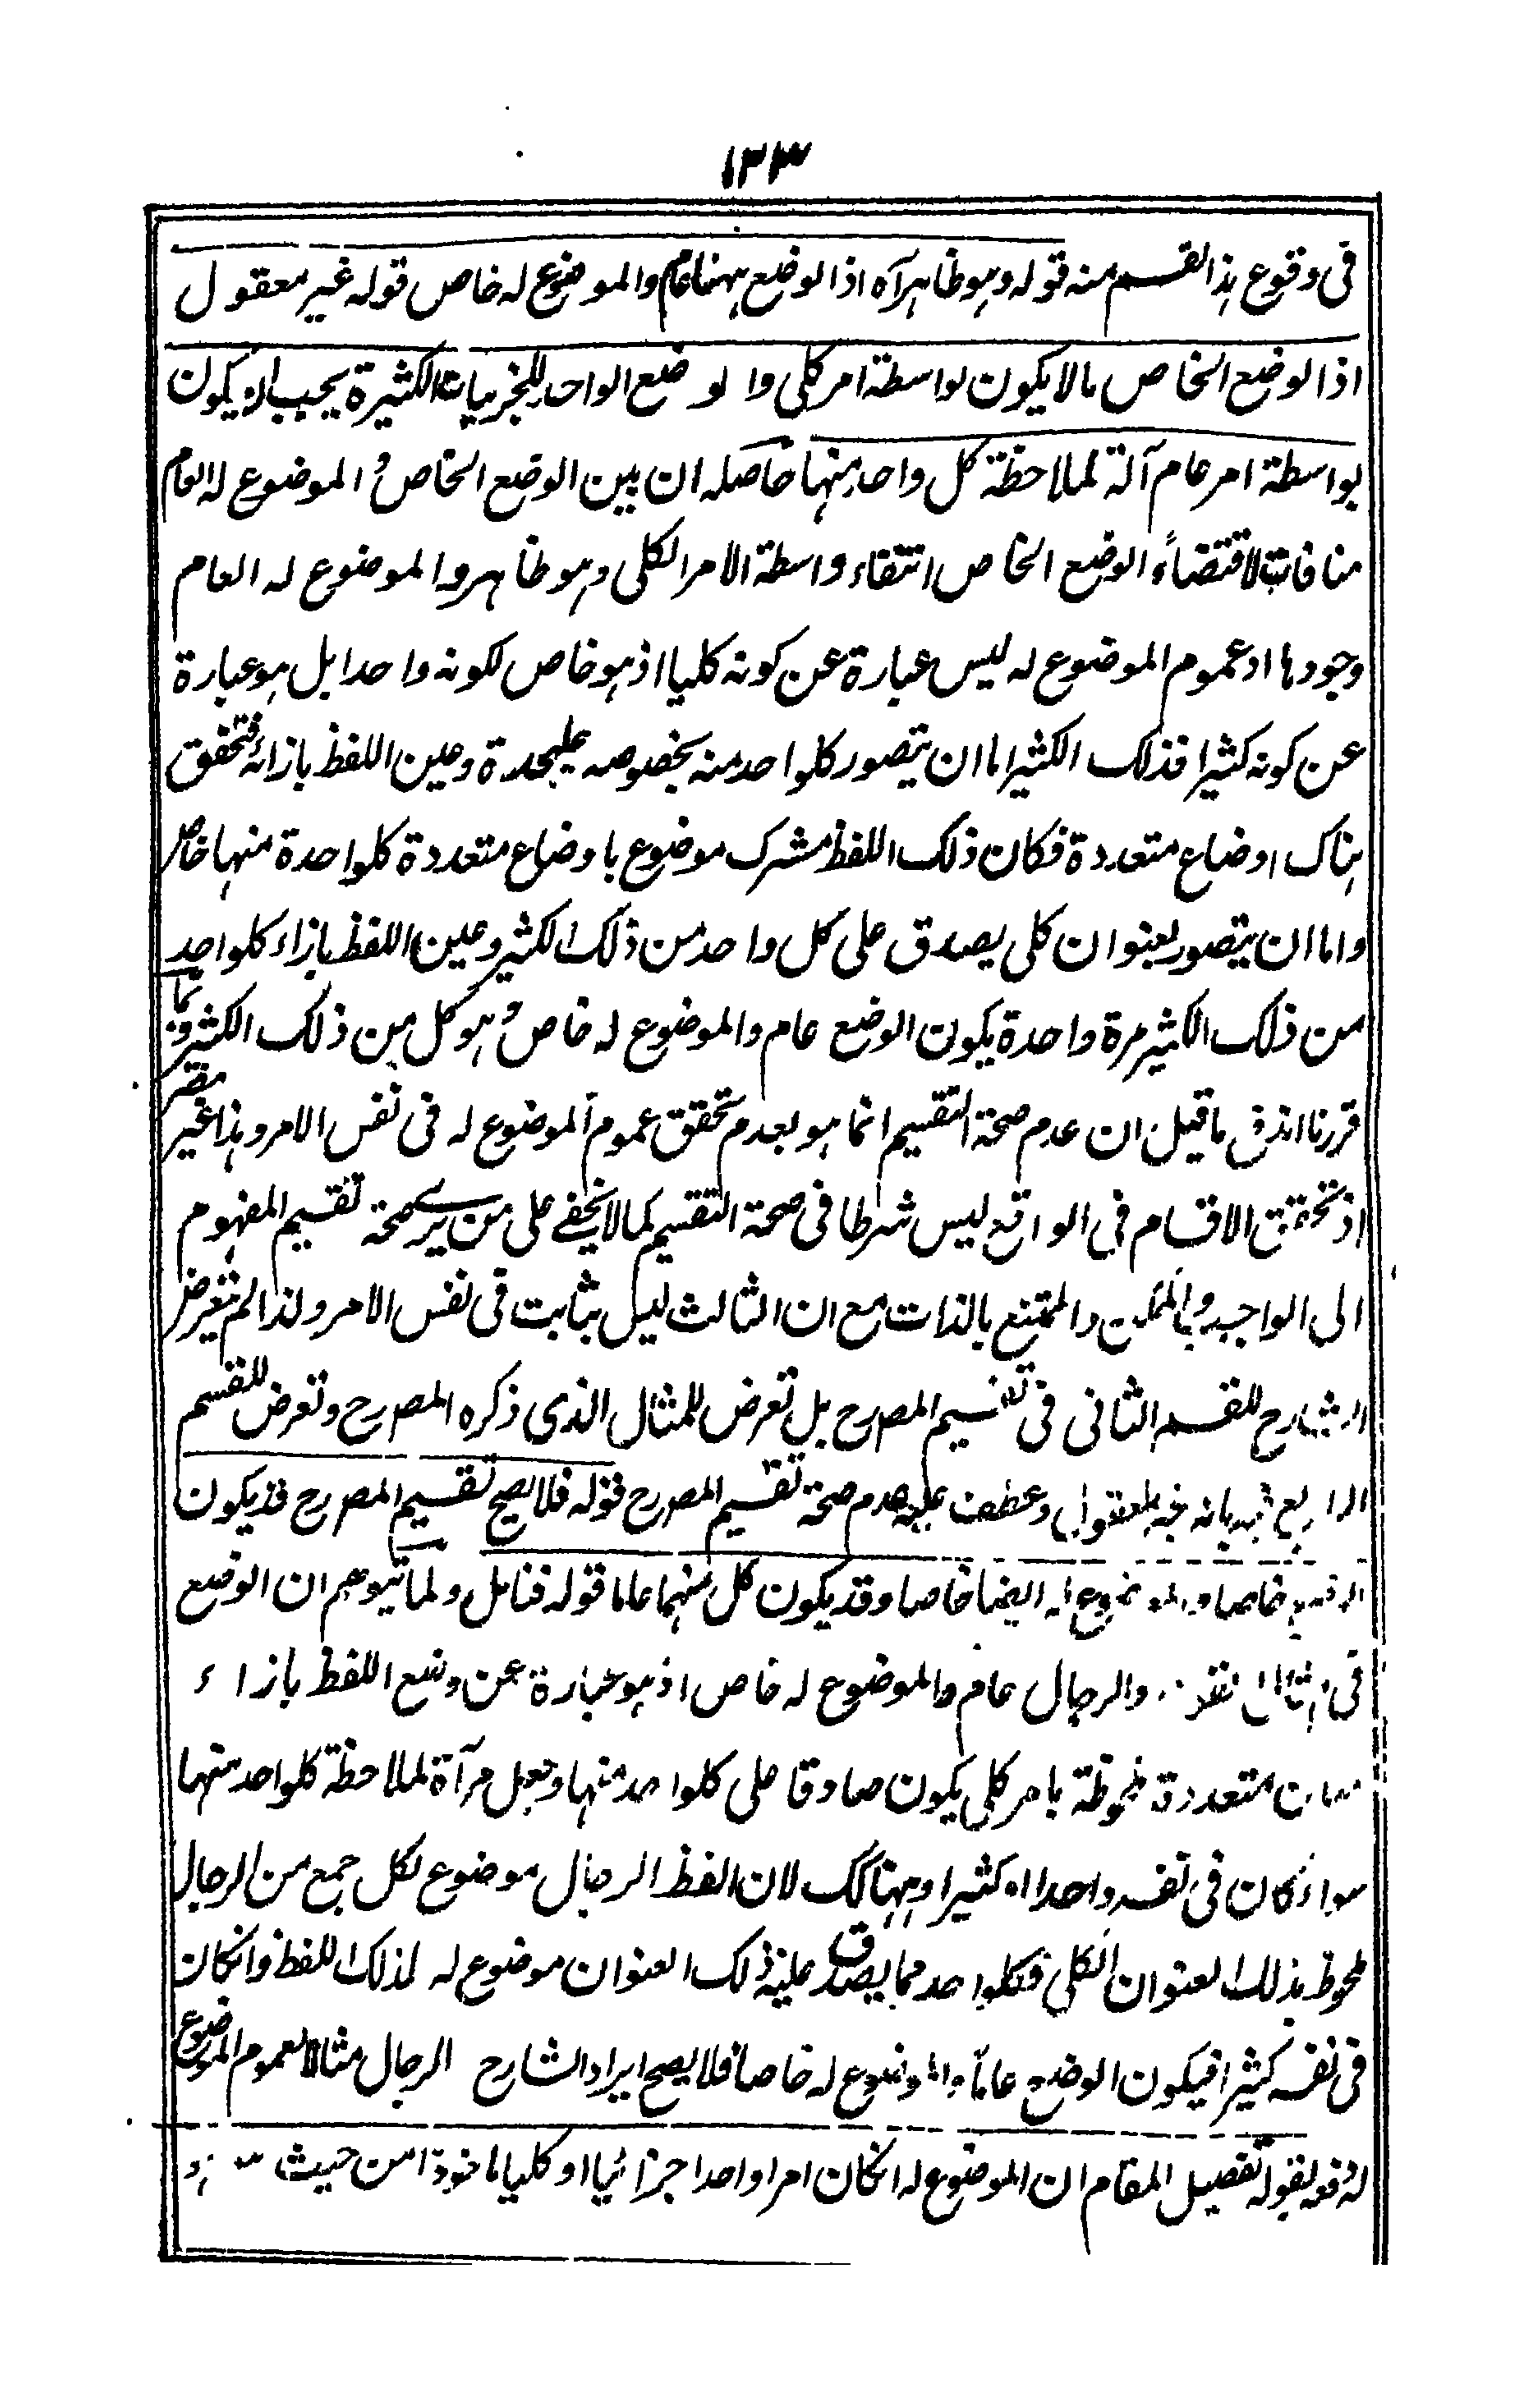 ١٣٣
فى وقوع هذا القسم منه قوله وهو ظاهرآه اذ الوضع ههنا عام والموضوع له خاص قوله غير معقول
اذ الوضع الخاص مالا يكون بواسطة امر كلى والوضع الواحد للجزئيات الكثيرة يجب ان يكون
بواسطة امر عام آلة لملاحظة كل واحد منها حاصله ان بين الوضع الخاص و الموضوع له العام
منافات لاقتضاء الوضع الخاص انتفاء واسطة الامر الكلى وهو ظاهر والموضوع له العام
وجودها اذ عموم الموضوع له ليس عبارة عن كونه كليا اذ هو خاص لكونه واحدا بل هو عبارة
عن كونه كثيرا فذلك الكثير اما ان يتصور كلواحد منه بخصوصه عليحدة وعين اللفظ بازائه فتحقق
هناك اوضاع متعددة فكان ذلك اللفظ مشرك موضوع باوضاع متعددة كلواحدة منها خاص
واما ان يتصور بعنوان كلى يصدق على كل واحد من ذلك الكثير وعين اللفظ بازاء كلواحد
من ذلك الكثير مرة واحدة يكون الوضع عام والموضوع له خاص وهو كل من ذلك الكثير وبما
قررنا اندفع ما قيل ان عدم صحة التقسيم انما هو بعدم تحقق عموم الموضوع له فى نفس الامر وهذا غير مضر
اذ تحقق الاقسام فى الواقع ليس شرطا فى صحة التقسيم كما لا يخفى على من يرى صحة تقسيم المفهوم
الى الواجب والممكن والممتنع بالذات مع ان الثالث ليس بثابت فى نفس الامر ولذا لم يتعرض
الشارح للقسم الثانى فى تقسيم المصرح بل تعرض للمثال الذى ذكره المصرح وتعرض للقسم
الرابع بانه غير معقول وعطف عليه عدم صحة تقسيم المصرح قوله فلا يصح تقسيم المصرح قد يكون
الوضع خاصا والموضوع له ايضا خاصا وقد يكون كل منهما عاما قوله فتامل ولما يتوهم ان الوضع
فى والرجال عام والموضوع له خاص اذ هو عبارة عن وضع اللفظ بازاء
معان متعددة ملحوظة بامر كلى يكون صادقا على كلواحد منها وجعل مرآة لملاحظة كلواحد منها
سواء كان فى نفسه واحدا او كثيرا وههنا كك لان لفظ الرجال موضوع لكل جمع من الرجال
ملحوظ بذلك العنوان الكلى فكلواحد مما يصدق عليه ذلك العنوان موضوع له لذلك اللفظ وانكان
فى نفسه كثيرا فيكون الوضع عاما والموضوع له خاصا فلا يصح ايراد الشارح الرجال مثالا لعموم الموضوع
له دفعه بقوله تفصيل المقام ان الموضوع له انكان امرا واحدا جزائيا او كليا ماخوذا من حيث